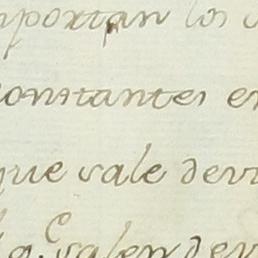 mportan los
constantes en
que vale deve
valen dev